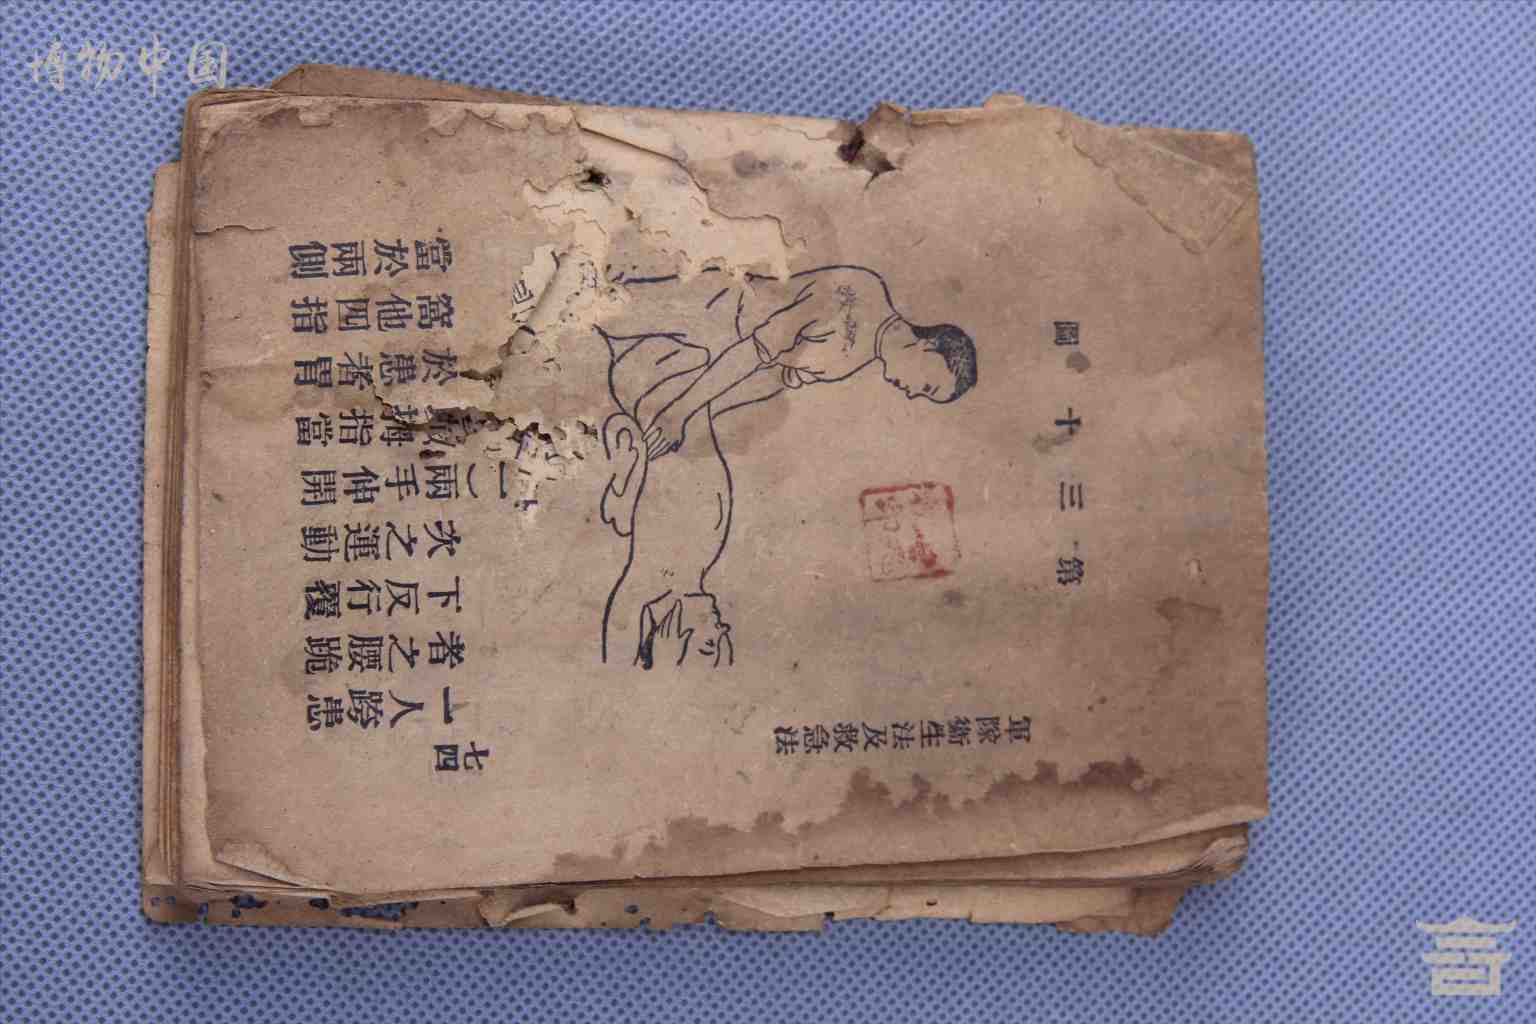 博物中国
軍隊衛生法及救急法
七四
第三十圖
一人跨患
者之腰跪
下反行覆
次之運動
一）兩手伸開
拇指當
於患者胃
窩他四指
當於兩側